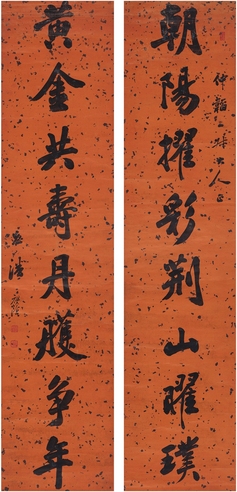 朝陽擢彩荆山曜璞
仲韜 大人正
黃金共壽丹雘争年